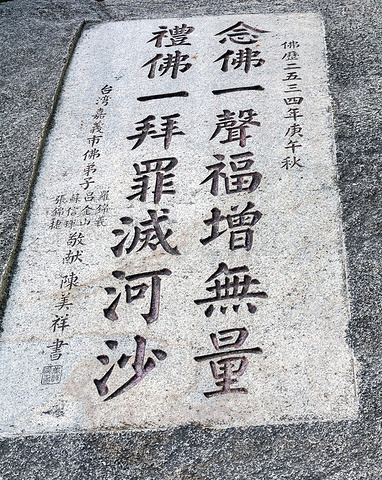 佛歷二五三四年庚午秋
念佛一聲福增無量
禮佛一拜罪滅河沙
台湾嘉義市佛弟子
呂金山
敬献
陳美祥書